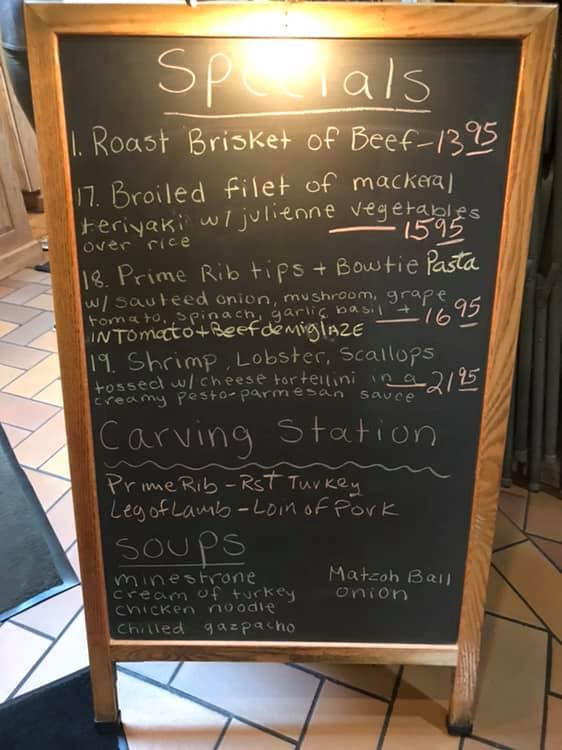 Specials
1. Roast Brisket of Beef - 13 95
17. Broiled filet of mackeral
teriyaki w/ julienne vegetables
over rice — 15 95
18. Prime Rib tips + Bowtie Pasta
w/ sauteed onion, mushroom, grape
tomato, spinach, garlic, basil + — 16 95
IN TOMATO + Beef demiglaze
19. Shrimp, Lobster, Scallops
tossed w/ cheese tortellini in a — 21 95
creamy pesto-parmesan sauce
Carving Station
Prime Rib - Rst Turkey
Leg of Lamb - Loin of Pork
SOUPS
minestrone
cream of turkey
chicken noodle
chilled gazpacho
Matzoh Ball
onion